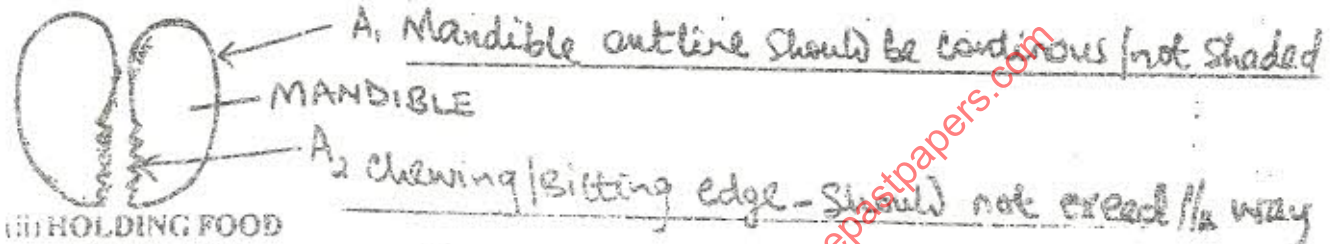 A1 Mandible outline should be continous / not shaded
MANDIBLE
A2 Chewing / Bitting edge - Should not exceed 1/2 way
(ii) HOLDING FOOD
epastpapers.com